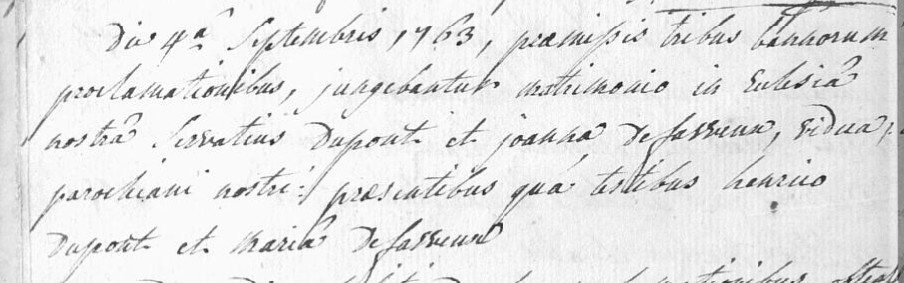 Die 4ª Septembris 1763, præmissis tribus bannorum
proclamationibus, jungebantur matrimonio in Eclesiâ
nostrâ Servatius Dupont et joanna Defaweux, vidua,
parochiani nostri: præsentibus quâ testibus henrico
Dupont et mariâ Defaweux